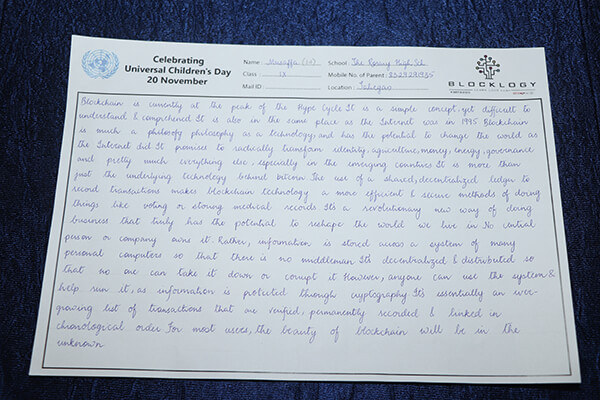 Celebrating
Universal Children's Day
20 November
Name: Musaffa
School: The Rosary High Sch
Class: IX
Mobile No. of Parent:
Mail ID
Location:
BLOCKLOGY
Blockchain is currently at the peak of the Hype Cycle It is a simple concept yet difficult to
understand & comprehend It is also in the same place as the Internet was in 1995 Blockchain
is much a philosofy philosophy as a technology, and has the potential to change the world as
the Internet did It promises to radically transform identity, agriculture, money, energy, governance
and pretty much everything else, especially in the emerging countries It is more than
just the underlying technology behind bitcoin The use of a shared, decentralized ledger to
record transactions makes blockchain technology a more efficient & secure methods of doing
things like voting or storing medical records Its a revolutionary new way of doing
business that truly has the potential to reshape the world we live in No central
person or company owns it. Rather, information is stored across a system of many
personal computers so that there is no middleman. Its decentralized & distributed so
that no one can take it down or corrupt it However, anyone can use the system &
help run it, as information is protected through cryptography It's essentially an ever-
growing list of transactions that are verified, permanently recorded & linked in
chronological order For most users, the beauty of blockchain will be in the
unknown